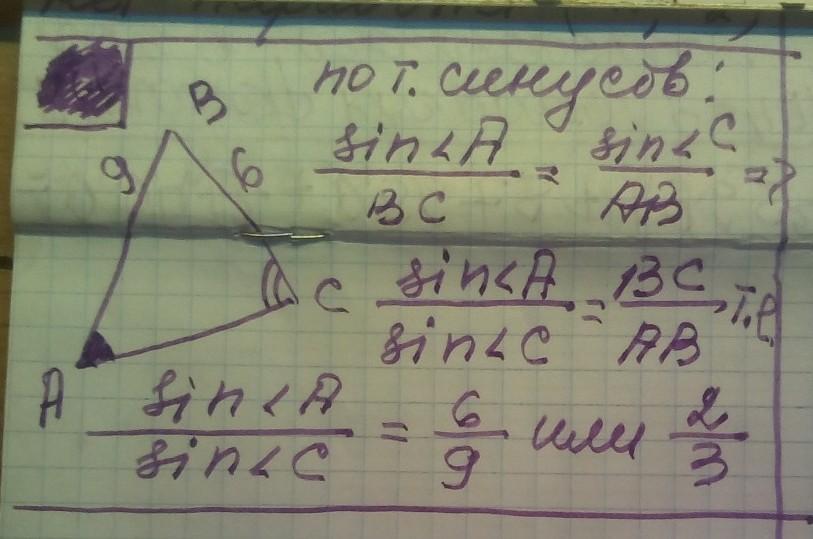 по т. синусов:
B
9
6
sin<A / BC = sin<C / AB =>
C
sin<A / sin<C = BC / AB т.е
A
sin<A / sin<C = 6/9 или 2/3